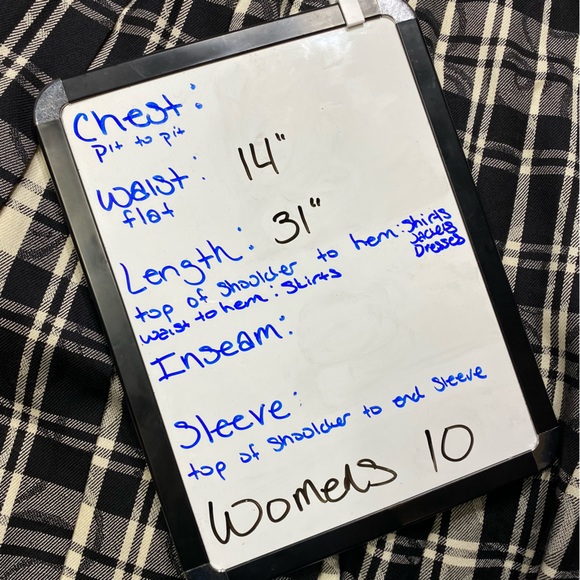 Chest:
pit to pit
Waist: 14"
flat
Length: 31"
top of shoulder to hem: shirts
Jackets
Dresses
waist to hem: skirts
Inseam:
Sleeve:
top of shoulder to end sleeve
Womens 10